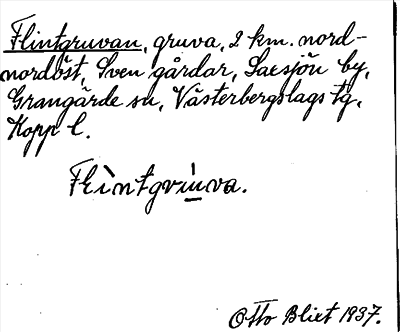 Flintgruvan, gruva, 2 km. nord-
nordöst, Sven gårdar, Saxsjön by,
Grangärde sn, Västerbergslags tg,
Kopp l.
Flìntgrùva.
Otto Blixt 1937.